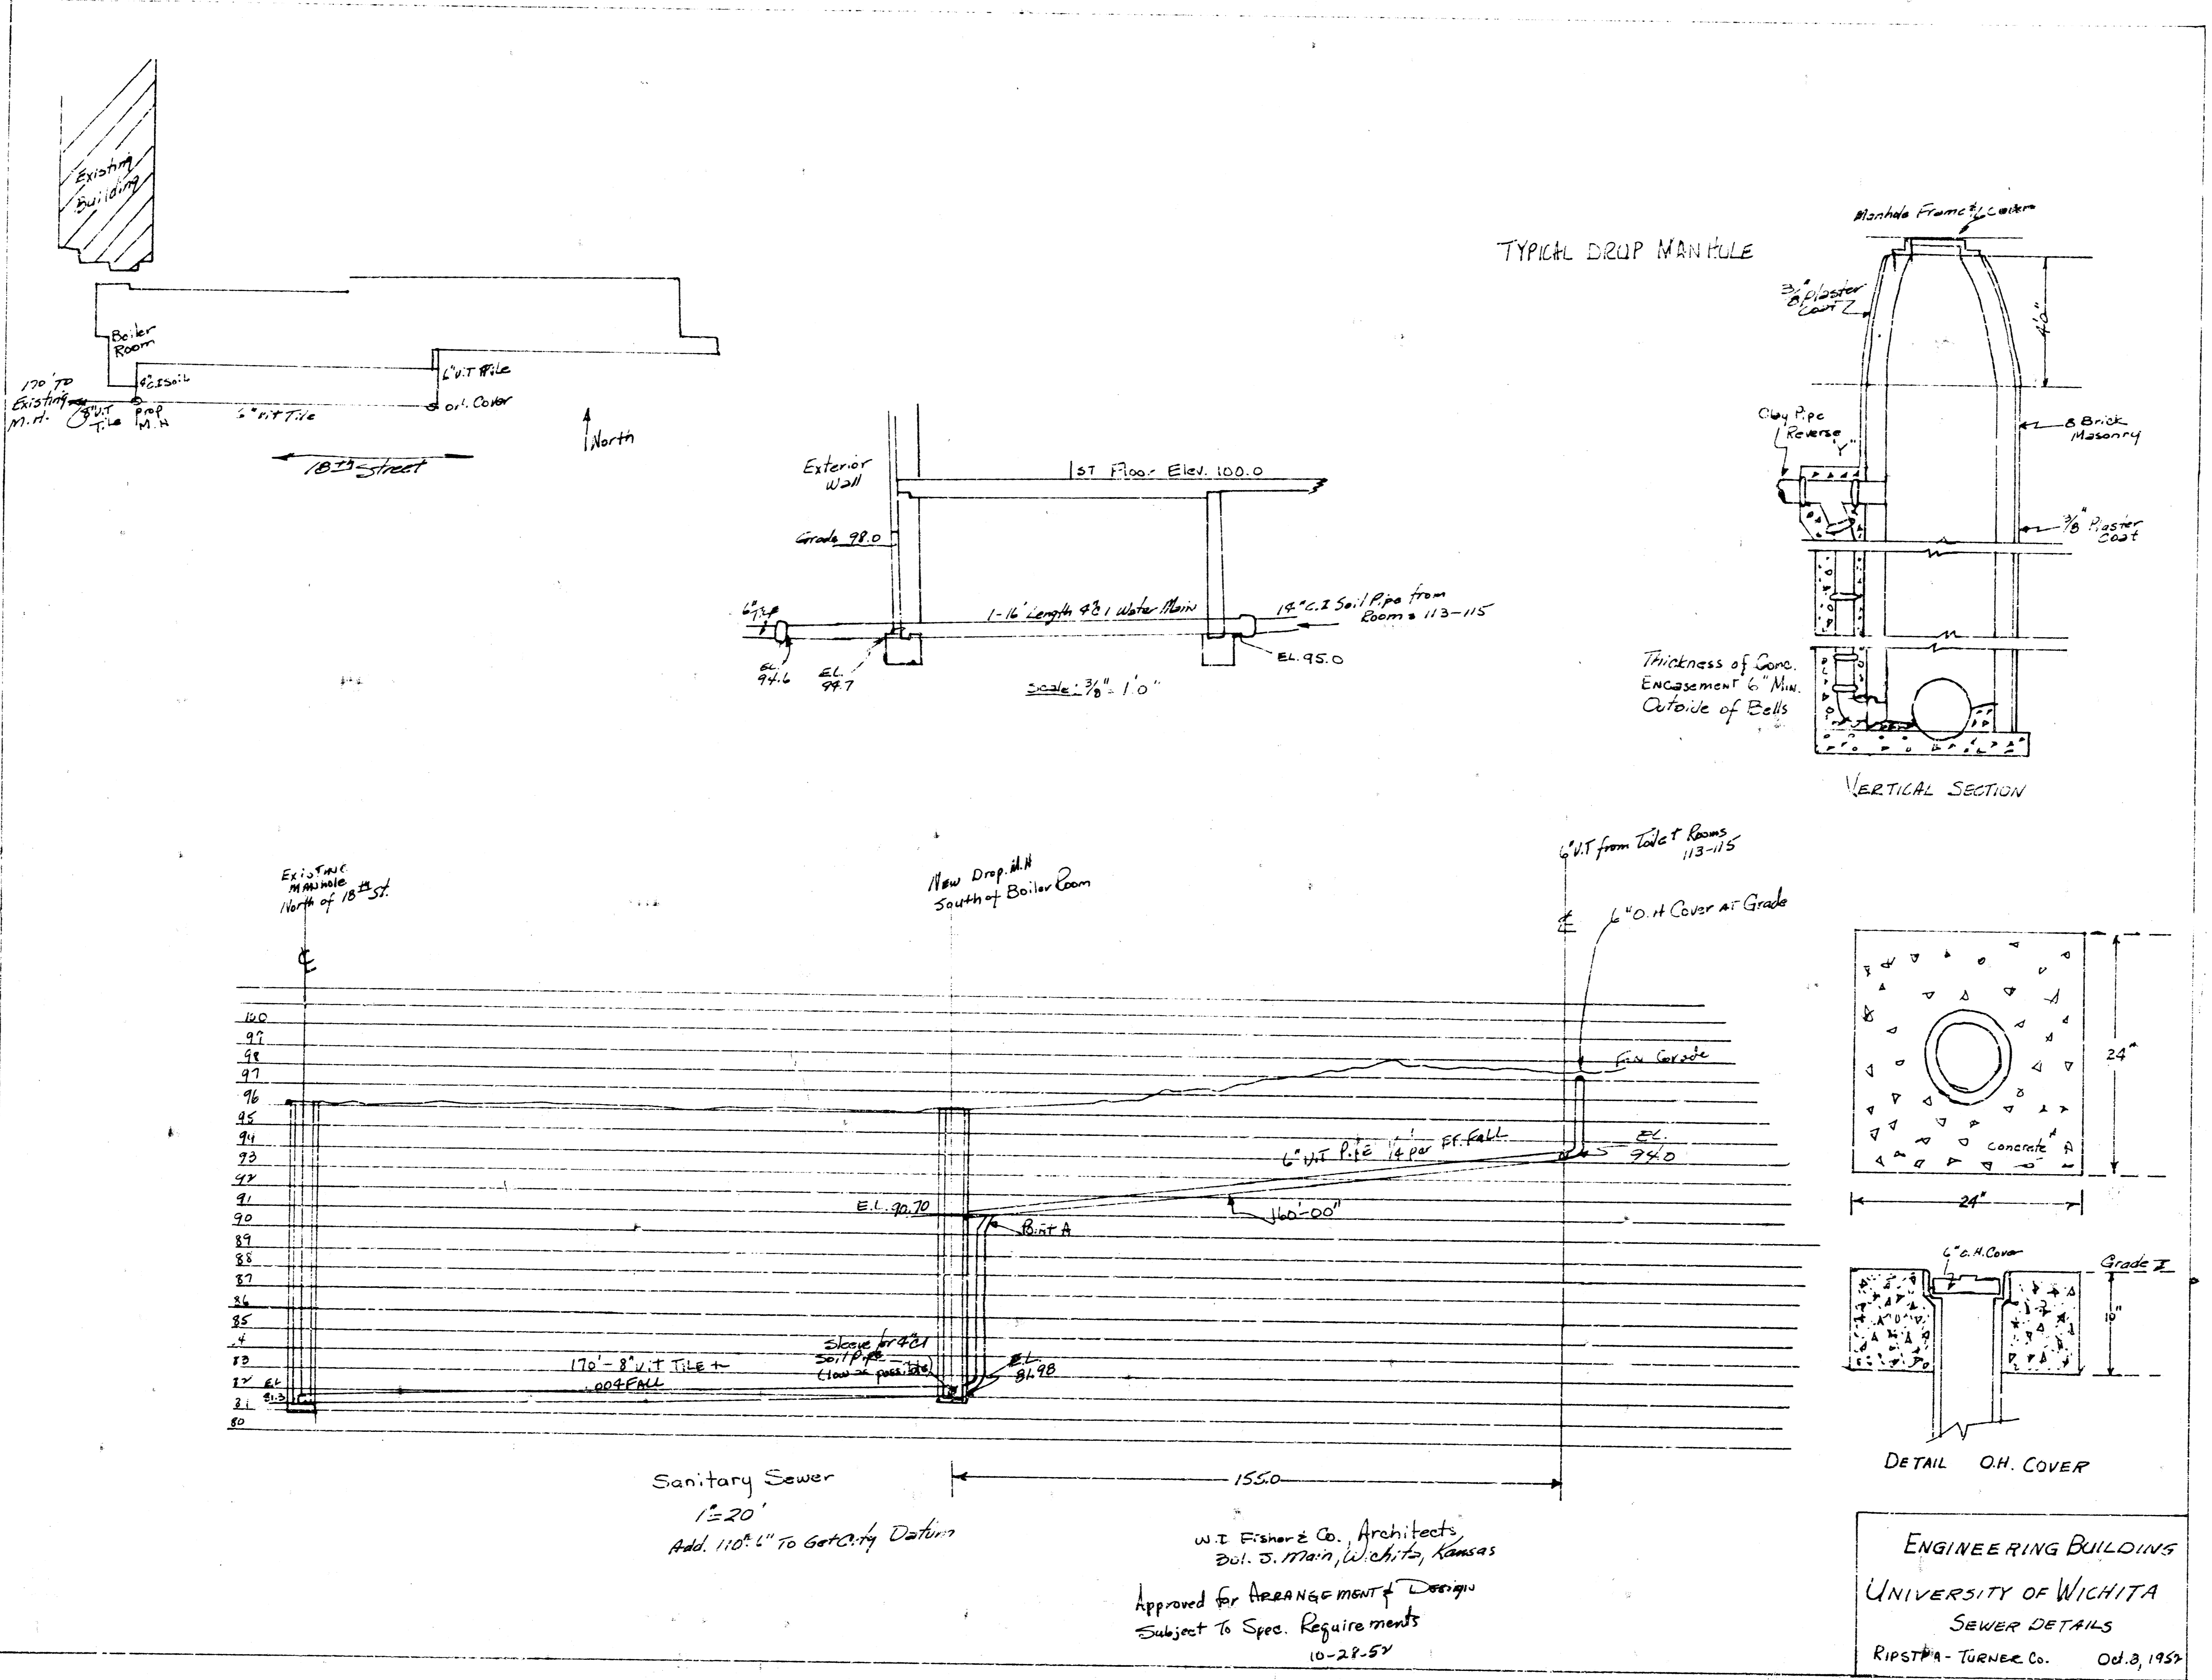 Existing
Building
Boiler
Room
170' TO
Existing
M.H.
8" V.T
Tile
Prop
M.H
4" C.I Soil
6" Vit Tile
6" V.T Tile
O.H. Cover
North
18TH Street
Exterior
Wall
1ST Floor Elev. 100.0
Grade 98.0
1-16' Length 4" C.I Water Main
4" C.I Soil Pipe from
Rooms 113-115
EL.
94.6
EL.
94.7
EL. 95.0
Scale: 3/8" = 1'0"
TYPICAL DROP MANHOLE
Manhole Frame & Cover
3/8" Plaster
Coat
4'0"
Clay Pipe
Reverse
"Y"
8 Brick
Masonry
3/8" Plaster
Coat
Thickness of Conc.
Encasement 6" Min.
Outside of Bells
VERTICAL SECTION
Existing
Manhole
North of 18th St.
New Drop. M.H
South of Boiler Room
6" V.T from Toilet Rooms
113-115
6" O.H Cover AT Grade
100
99
98
97
96
95
94
93
92
91
90
89
88
87
86
85
4
83
82
81
80
Fin Grade
6" V.T Pipe 1/4 per FT. FALL
EL.
94.0
E.L. 90.70
Point A
160'-00"
170'-8" V.T TILE
.004 FALL
Sleeve for 4" C.I
Soil Pipe
(low as possible)
E.L.
81.98
EL
81.3
155.0
Sanitary Sewer
1"=20'
Add. 110'-6" To Get City Datum
W.I Fisher & Co., Architects,
301. S. Main, Wichita, Kansas
Approved for ARRANGEMENT & Design
Subject To Spec. Requirements
10-28-52
24"
Concrete
24"
6" O.H. Cover
Grade
10"
DETAIL O.H. COVER
ENGINEERING BUILDING
UNIVERSITY OF WICHITA
SEWER DETAILS
RIPSTRA - TURNER Co. Oct. 3, 1952